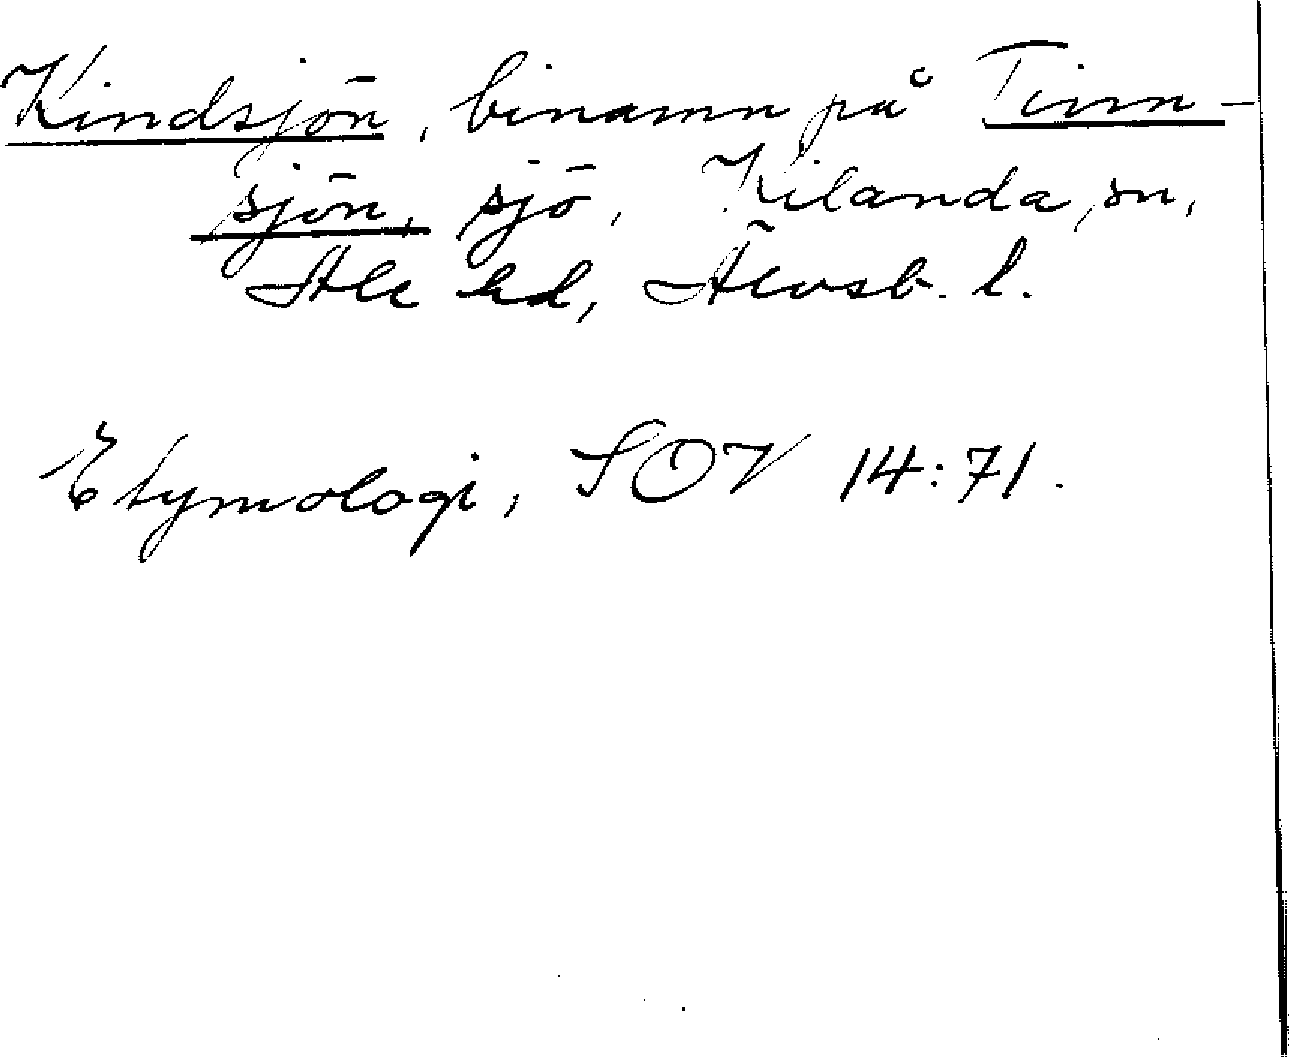 Kindsjön, binamn på Tinn-
sjön, sjö, Kilanda sn,
Ale hd, Älvsb. l.
Etymologi, SOV 14:71.